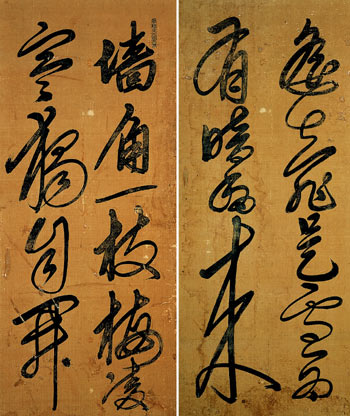 遙知是雪為
有暗香來
墻角一枝梅凌
寒獨自開